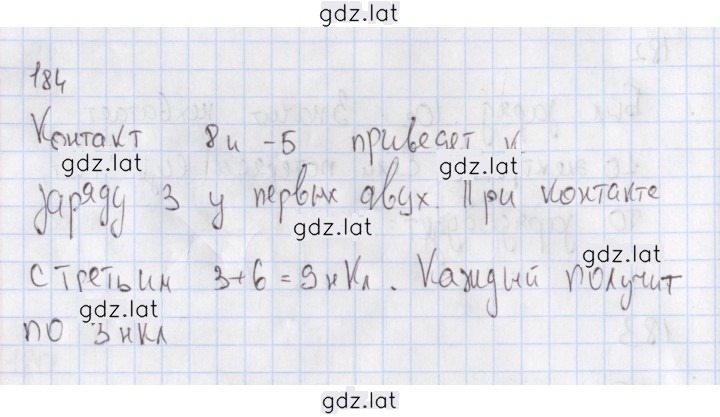 gdz.lat
184
Контакт 8 и -5 приведет к
gdz.lat
gdz.lat
заряду 3 у первых двух. При контакте
gdz.lat
gdz.lat
с третьим 3+6=9нКл. Каждый получит
gdz.lat
по 3нКл
gdz.lat